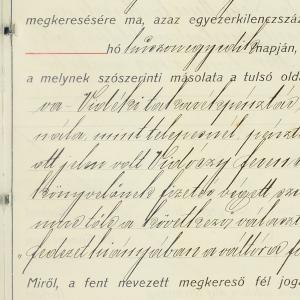 megkeresésére ma, azaz egyezerkilenczszáz
hó huszonegyedik napján,
a melynek szószerinti másolata a tulsó olda
va - Vidéki takarékpénztár
nála, mint telepesnél, pénztár
ott jelen volt Vidóczy Ferencz
könyvelőnek fizetés végett
a következő választ
fedezet hiányában a váltóra
Miről, a fent nevezett megkereső fél joga